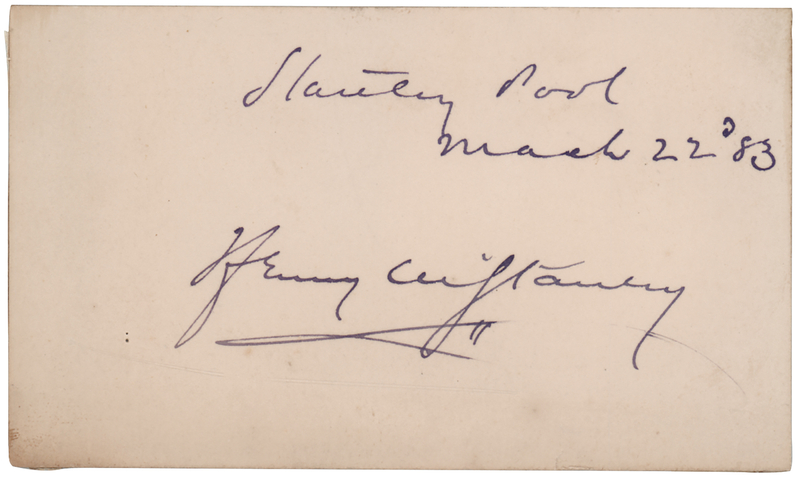 Stanley Pool
March 22d 83
Henry M Stanley